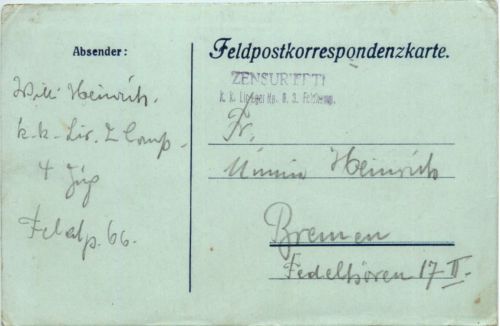 Absender:
Willi Heinrich.
k.k. Lir. Comp.
4 Zug
Feldp. 66.
Feldpostkorrespondenzkarte.
ZENSURIERT!
k. k.
Fr.
Heinrich
Bremen
Fedelhören 17 II.